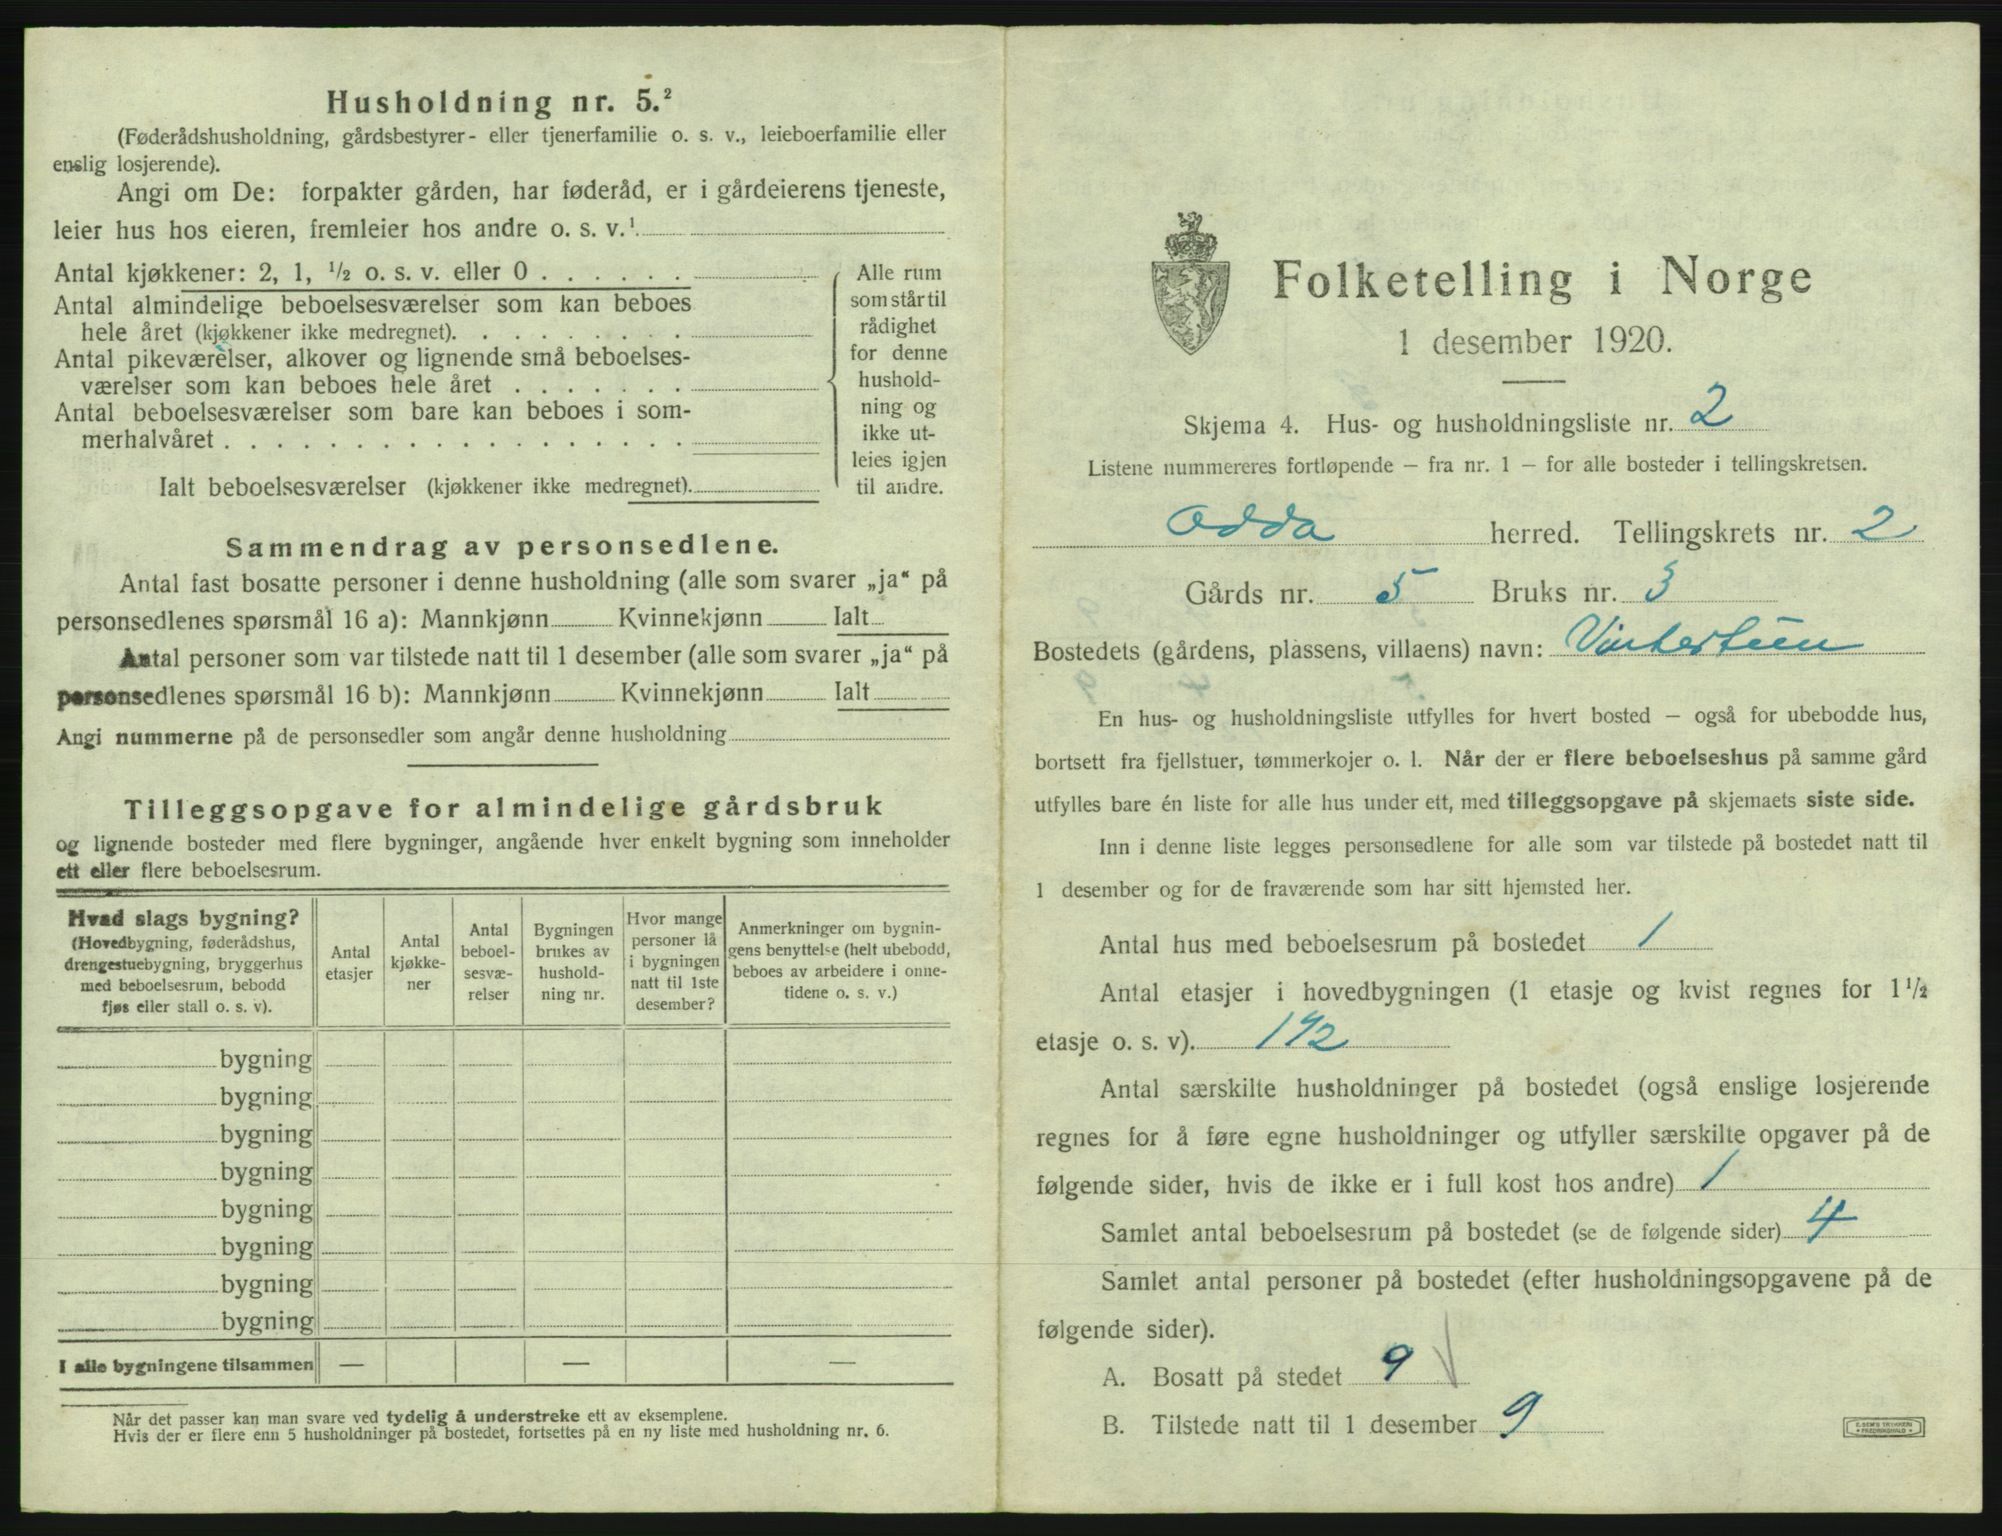 Husholdning nr. 5.²
(Føderådshusholdning, gårdsbestyrer- eller tjenerfamilie o. s. v., leieboerfamilie eller
enslig losjerende).
Angi om De: forpakter gården, har føderåd, er i gårdeierens tjeneste,
leier hus hos eieren, fremleier hos andre o. s. v.¹
Antal kjøkkener: 2, 1, ½ o. s. v. eller 0 . . . . . .
Antal almindelige beboelsesværelser som kan beboes
hele året (kjøkkener ikke medregnet). . . . . . . . .
Antal pikeværelser, alkover og lignende små beboelses-
værelser som kan beboes hele året . . . . . . .
Antal beboelsesværelser som bare kan beboes i som-
merhalvåret . . . . . . . . . . . . . . . . . .
Ialt beboelsesværelser (kjøkkener ikke medregnet).
Alle rum
som står til
rådighet
for denne
hushold-
ning og
ikke ut-
leies igjen
til andre.
Sammendrag av personsedlene.
Antal fast bosatte personer i denne husholdning (alle som svarer „ja“ på
personsedlenes spørsmål 16 a): Mannkjønn Kvinnekjønn Ialt
Antal personer som var tilstede natt til 1 desember (alle som svarer „ja“ på
personsedlenes spørsmål 16 b): Mannkjønn Kvinnekjønn Ialt
Angi nummerne på de personsedler som angår denne husholdning
Tilleggsopgave for almindelige gårdsbruk
og lignende bosteder med flere bygninger, angående hver enkelt bygning som inneholder
ett eller flere beboelsesrum.
Hvad slags bygning?
(Hovedbygning, føderådshus,
drengestuebygning, bryggerhus
med beboelsesrum, bebodd
fjøs eller stall o. s. v).
Antal
etasjer
Antal
kjøkke-
ner
Antal
beboel-
sesvæ-
relser
Bygningen
brukes av
hushold-
ning nr.
Hvor mange
personer lå
i bygningen
natt til 1ste
desember?
Anmerkninger om bygnin-
gens benyttelse (helt ubebodd,
beboes av arbeidere i onne-
tidene o. s. v.)
bygning
bygning
bygning
bygning
bygning
bygning
bygning
bygning
I alle bygningene tilsammen — — —
Når det passer kan man svare ved tydelig å understreke ett av eksemplene.
Hvis der er flere enn 5 husholdninger på bostedet, fortsettes på en ny liste med husholdning nr. 6.
Folketelling i Norge
1 desember 1920.
Skjema 4. Hus- og husholdningsliste nr. 2
Listene nummereres fortløpende – fra nr. 1 – for alle bosteder i tellingskretsen.
Odda herred. Tellingskrets nr. 2
Gårds nr. 5 Bruks nr. 3
Bostedets (gårdens, plassens, villaens) navn: Vintertun
En hus- og husholdningsliste utfylles for hvert bosted – også for ubebodde hus,
bortsett fra fjellstuer, tømmerkojer o. l. Når der er flere beboelseshus på samme gård
utfylles bare én liste for alle hus under ett, med tilleggsopgave på skjemaets siste side.
Inn i denne liste legges personsedlene for alle som var tilstede på bostedet natt til
1 desember og for de fraværende som har sitt hjemsted her.
Antal hus med beboelsesrum på bostedet 1
Antal etasjer i hovedbygningen (1 etasje og kvist regnes for 1½
etasje o. s. v). 1½
Antal særskilte husholdninger på bostedet (også enslige losjerende
regnes for å føre egne husholdninger og utfyller særskilte opgaver på de
følgende sider, hvis de ikke er i full kost hos andre) 1
Samlet antal beboelsesrum på bostedet (se de følgende sider) 4
Samlet antal personer på bostedet (efter husholdningsopgavene på de
følgende sider).
A. Bosatt på stedet 9
B. Tilstede natt til 1 desember 9
E. SEM'S TRYKKERI
FREDRIKSHALD